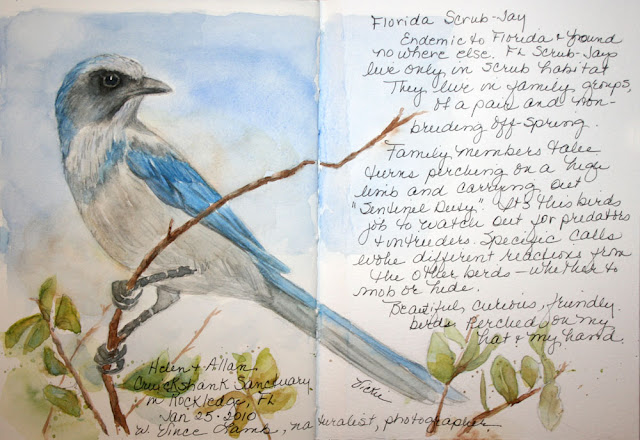 Florida Scrub-Jay
Endemic to Florida & found
no where else. FL Scrub-Jays
live only in scrub habitat
They live in family groups,
of a pair and non-
breeding off-spring.
Family members take
turns perching on a high
limb and carrying out
"Sentinel Duty". It's this birds
job to watch out for predators
& intruders. Specific calls
evoke different reactions from
the other birds - whether to
mob or hide.
Beautiful, curious, friendly
birds perched on my
hat & my hand.
Vickie
Helen & Allan
Cruickshank Sanctuary
in Rockledge, FL
Jan 25, 2010
w. Vince Lamb, naturalist, photographer